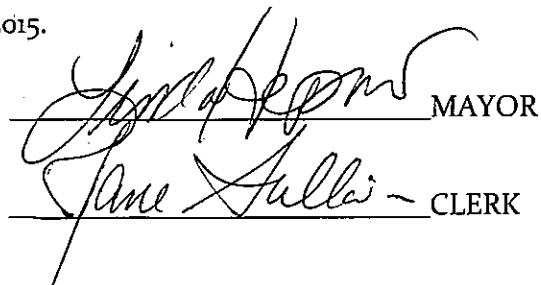 2015.
Linda Hepner MAYOR
Jane Sullivan CLERK